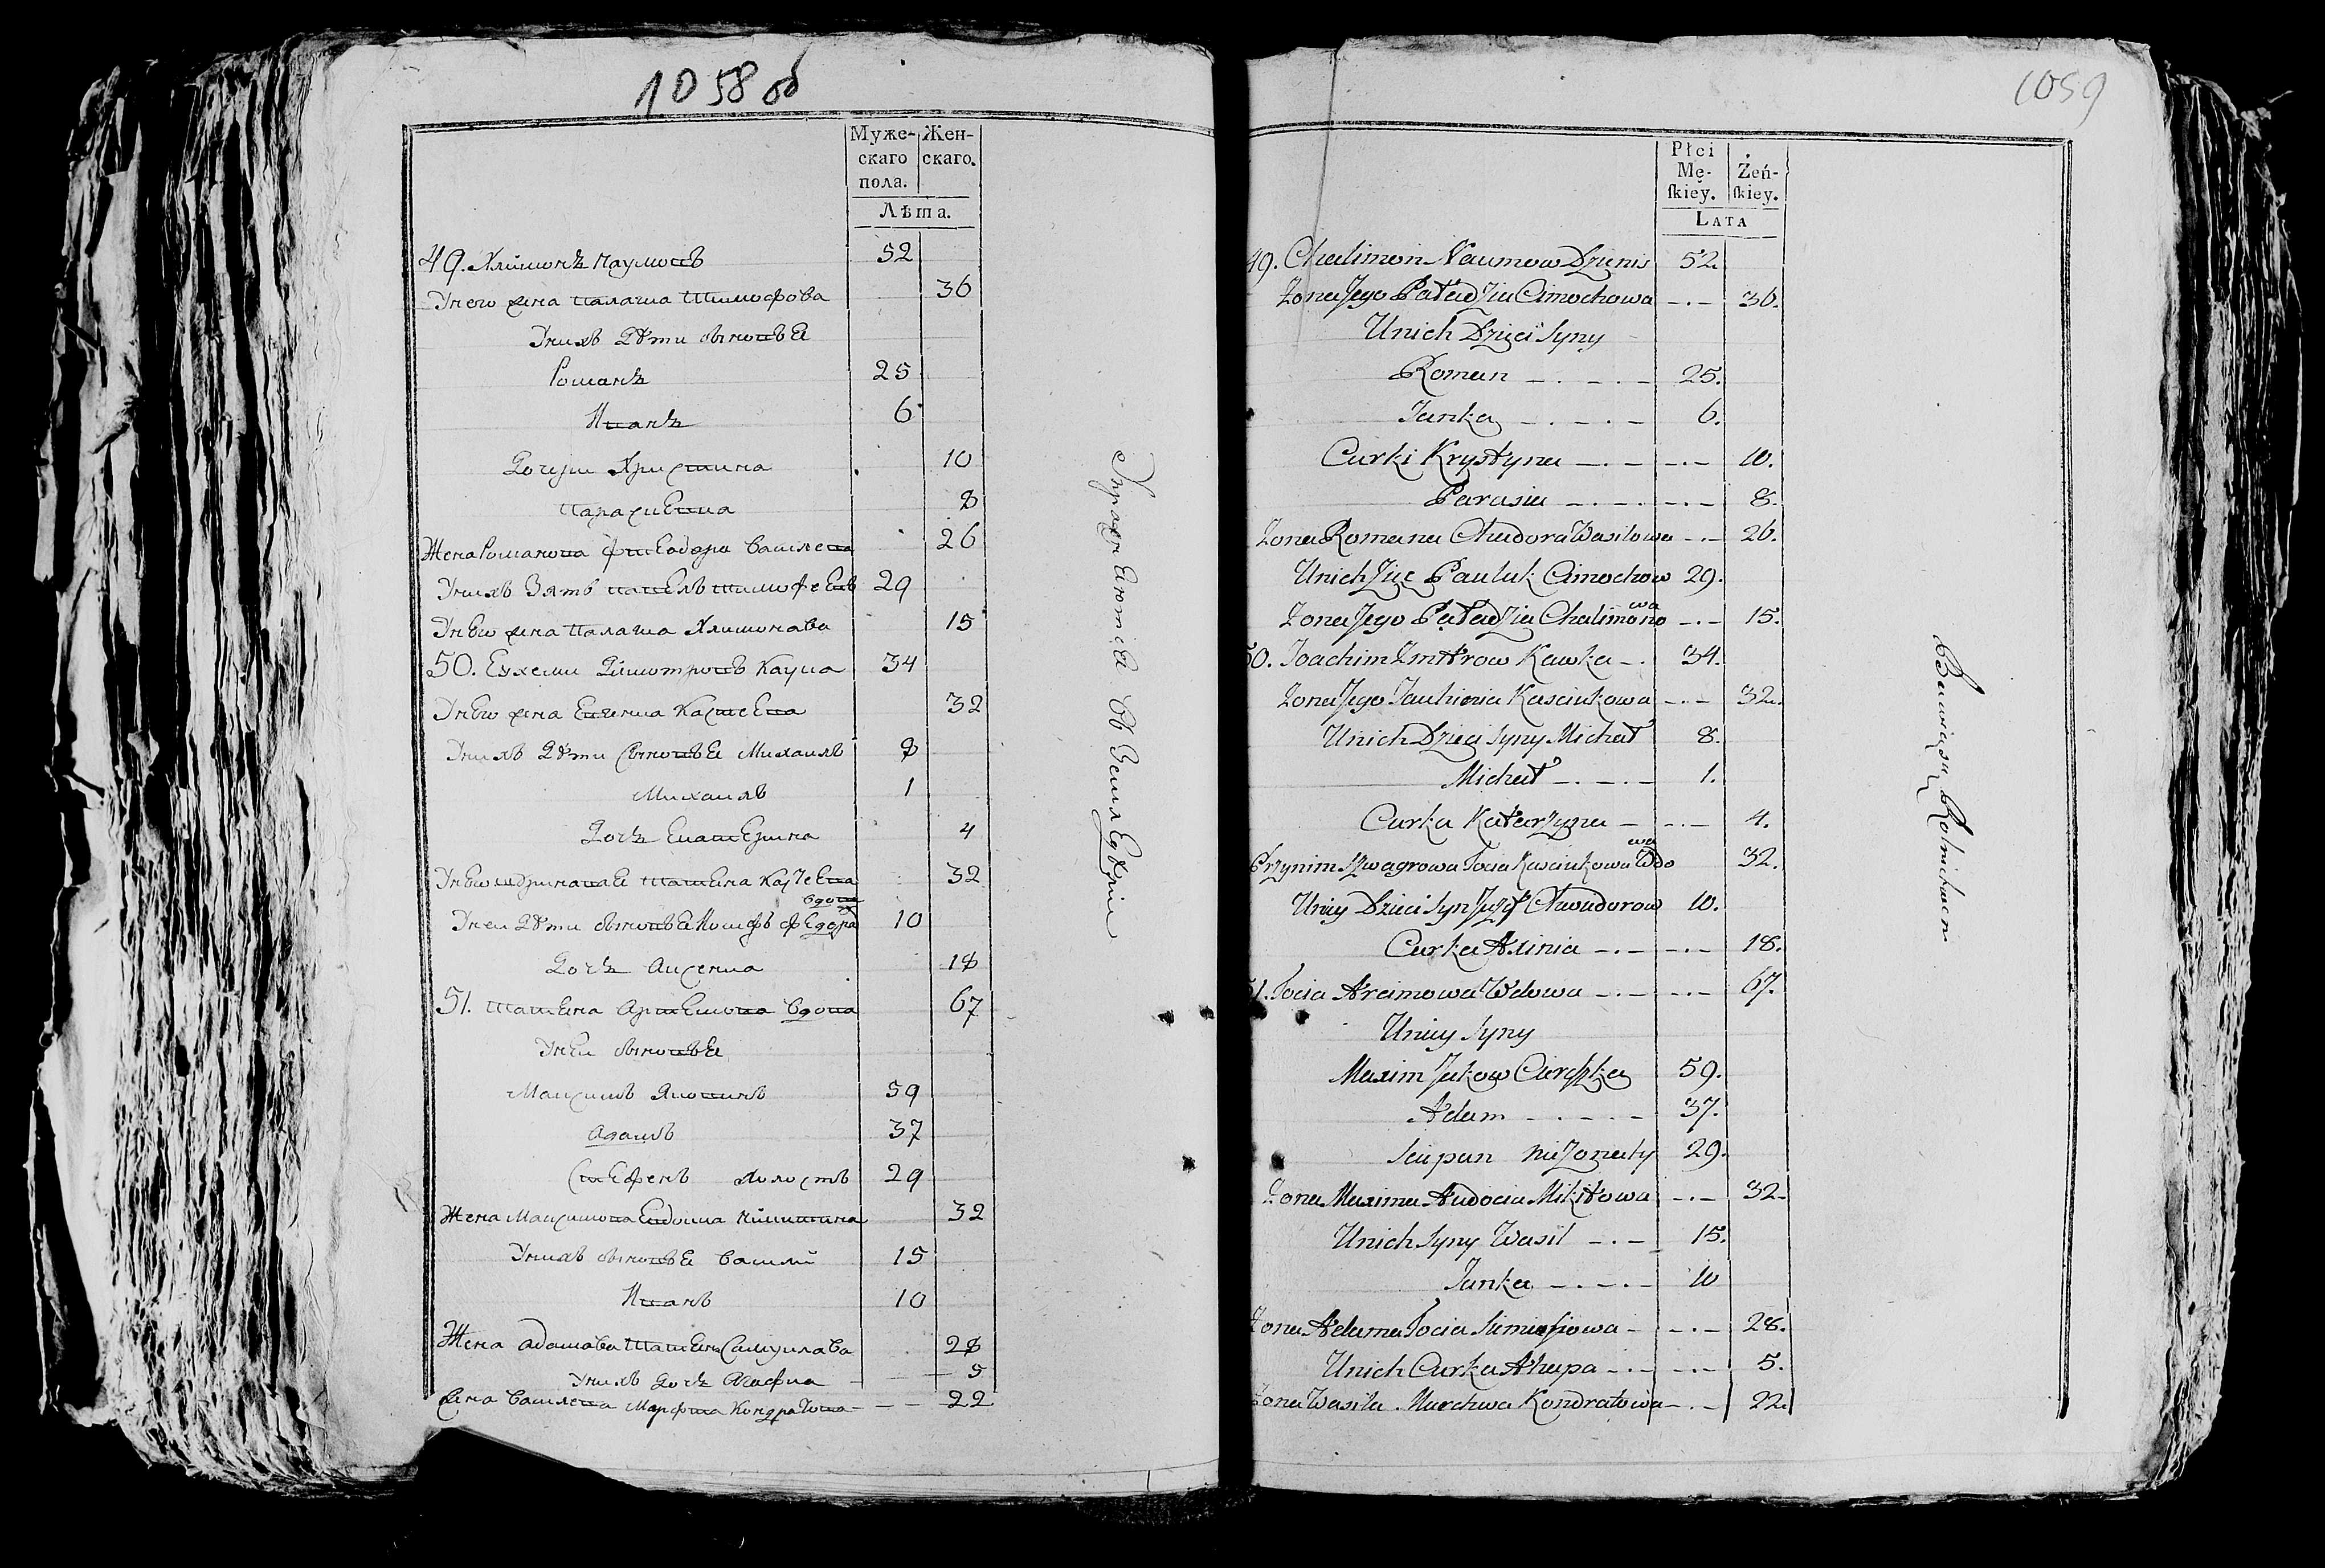 1058 об
Муже-
скаго
пола.
Жен-
скаго.
Лѣта.
49. Хлимонъ Наумовъ 52
У него жена Палагиа Тимофова 36
У нихъ дѣти сыновьѐ
Романъ 25
Иванъ 6
Дочери Христина 10
Парасиевиа 8
Жена Романова Фтеодора Василева 26
У нихъ Зять Павелъ Тимофеевъ 29
У него жена Палагиа Хлимонава 15
50. Еухеми Димитровъ Каука 34
У него жена Евгениа Кастева 32
У нихъ дѣти Сыновьѐ Михаилъ 8
Михаилъ 1
Дочь Екатерина 4
У него Татиена вдова 32
У ней дѣти сыновьѐ Иосифъ Федора 10
Дочь Аксениа 18
51. Татиена Артемова вдова 67
У ней сыновьѐ
Максимъ Яковинъ 59
Адамъ 37
Стефенъ холостъ 29
Жена Максимова Евдокиа Никитина 32
У нихъ сыновьѐ Василий 15
Иванъ 10
Жена Адамава Татиена Самуилава 28
У нихъ дочь Агафиа 5
Жена Василева Марфиа Кондратова 22
Упражняютсѐ въ Землеѣдѣліи
1059
Płci
Mę-
ſkiey.
Żeń-
ſkiey.
Lata
49. Chalimon Naumow Dzienis 52.
Zona Jego Paładzia Cimochowa 36.
U nich Dzieci Syny
Roman 25.
Janka 6.
Curki Krystyna 10.
Parasia 8.
Zona Romana Chadora Wasilowa 26.
U nich Zięć Pauluk Cimochow 29.
Zona Jego Paładzia Chalimonowa 15.
50. Joachim Zmitrow Kawka 34.
Zona Jego Jauhienia Kasciukowa 32.
U nich Dzieci Syny Michał 8.
Michał 1.
Curka Katarzyna 4.
Przy nim Szwagrowa Tocia Kasciukowa Wdowa 32.
U niey Dzieci Syn Jozef Chwiudorow 10.
Curka Axinia 18.
51. Tocia Arcimowa Wdowa 67.
U niey Syny
Maxim Jakow Ciareszka 59.
Adam 37.
Sciapan nie Zonaty 29.
Zona Maxima Audocia Mikitowa 32.
U nich Syny Wasil 15.
Janka 10
Zona Adama Tocia 28.
U nich Curka Ahapa 5.
Zona Wasila Marchwa Kondratowa 22.
Bawią się Rolnictwem